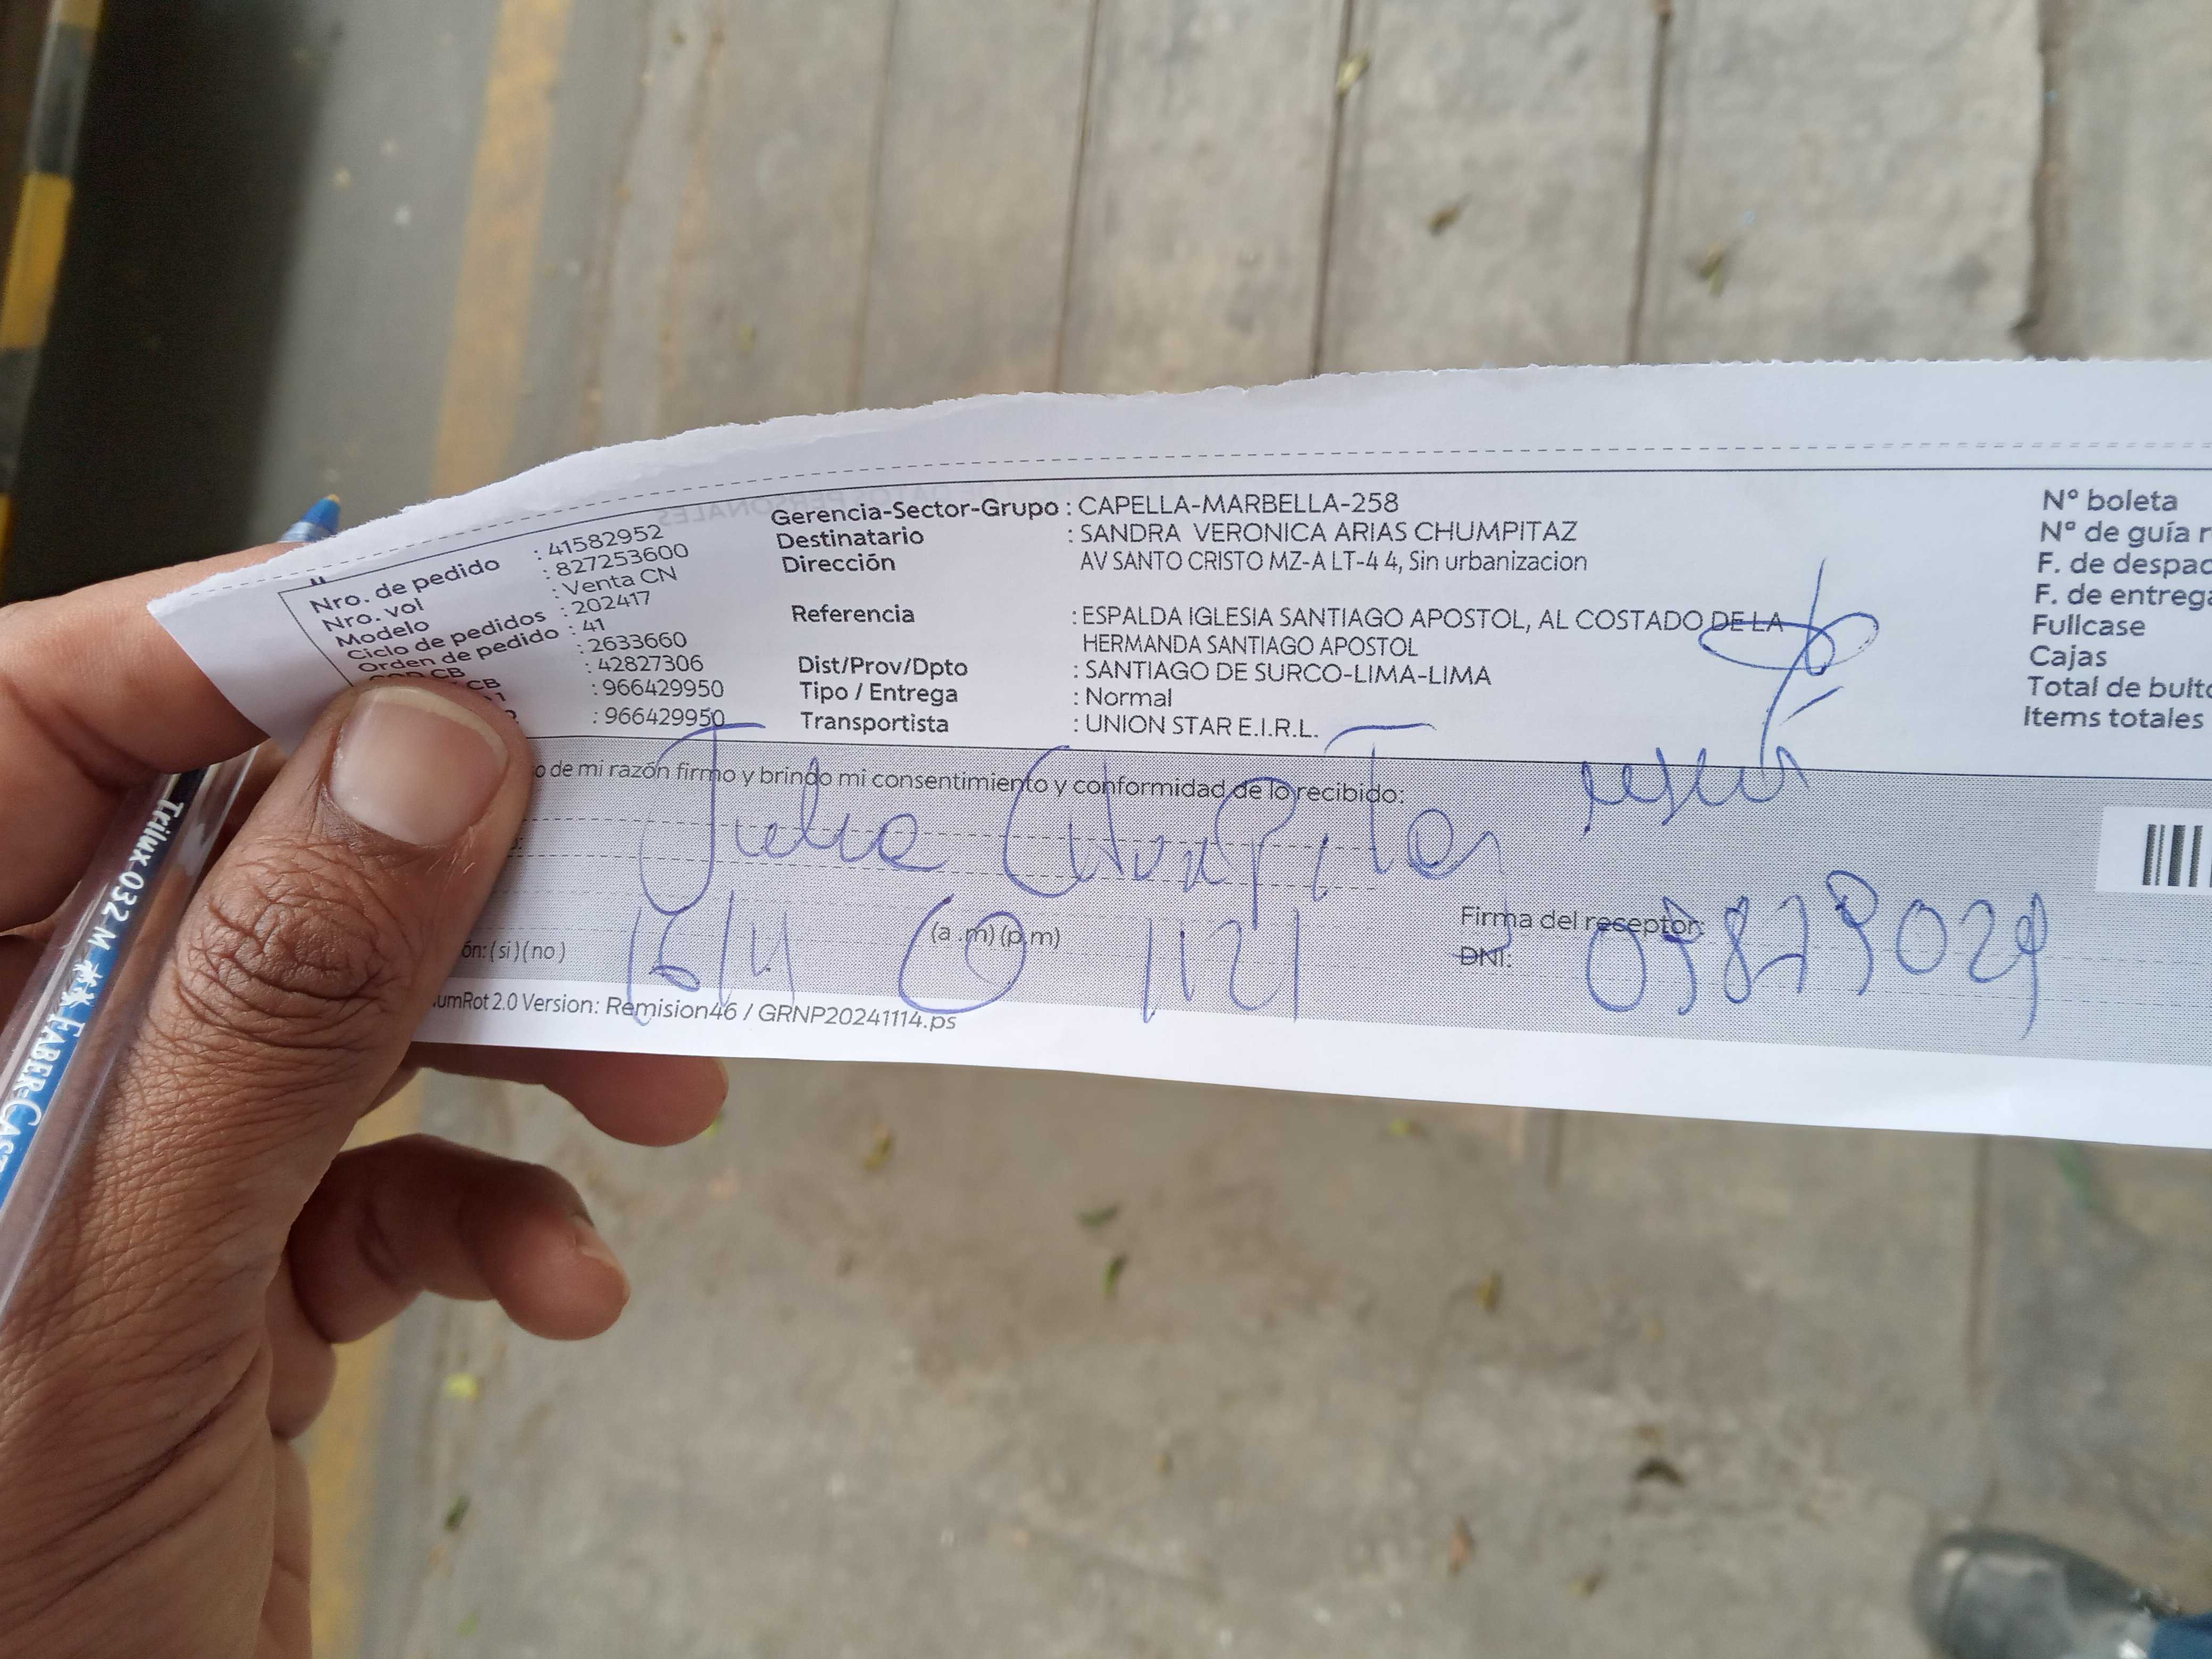 Nro. de pedido : 41582952
Nro. vol : 827253600
Modelo : Venta CN
Ciclo de pedidos : 202417
Orden de pedido : 41
COD CB : 2633660
CB : 42827306
1 : 966429950
: 966429950
Gerencia-Sector-Grupo : CAPELLA-MARBELLA-258
Destinatario : SANDRA VERONICA ARIAS CHUMPITAZ
Dirección AV SANTO CRISTO MZ-A LT-4 4, Sin urbanizacion
Referencia : ESPALDA IGLESIA SANTIAGO APOSTOL, AL COSTADO DE LA
HERMANDA SANTIAGO APOSTOL
Dist/Prov/Dpto : SANTIAGO DE SURCO-LIMA-LIMA
Tipo / Entrega : Normal
Transportista : UNION STAR E.I.R.L.
N° boleta
N° de guía r
F. de despac
F. de entrega
Fullcase
Cajas
Total de bulto
Items totales
o de mi razón firmo y brindo mi consentimiento y conformidad de lo recibido:
Julia
ón: ( si ) ( no )
16/11
(a .m) (p.m)
Firma del receptor:
DNI:
umRot 2.0 Version: Remision46 / GRNP20241114.ps
Trilux 032 M FABER-CAST